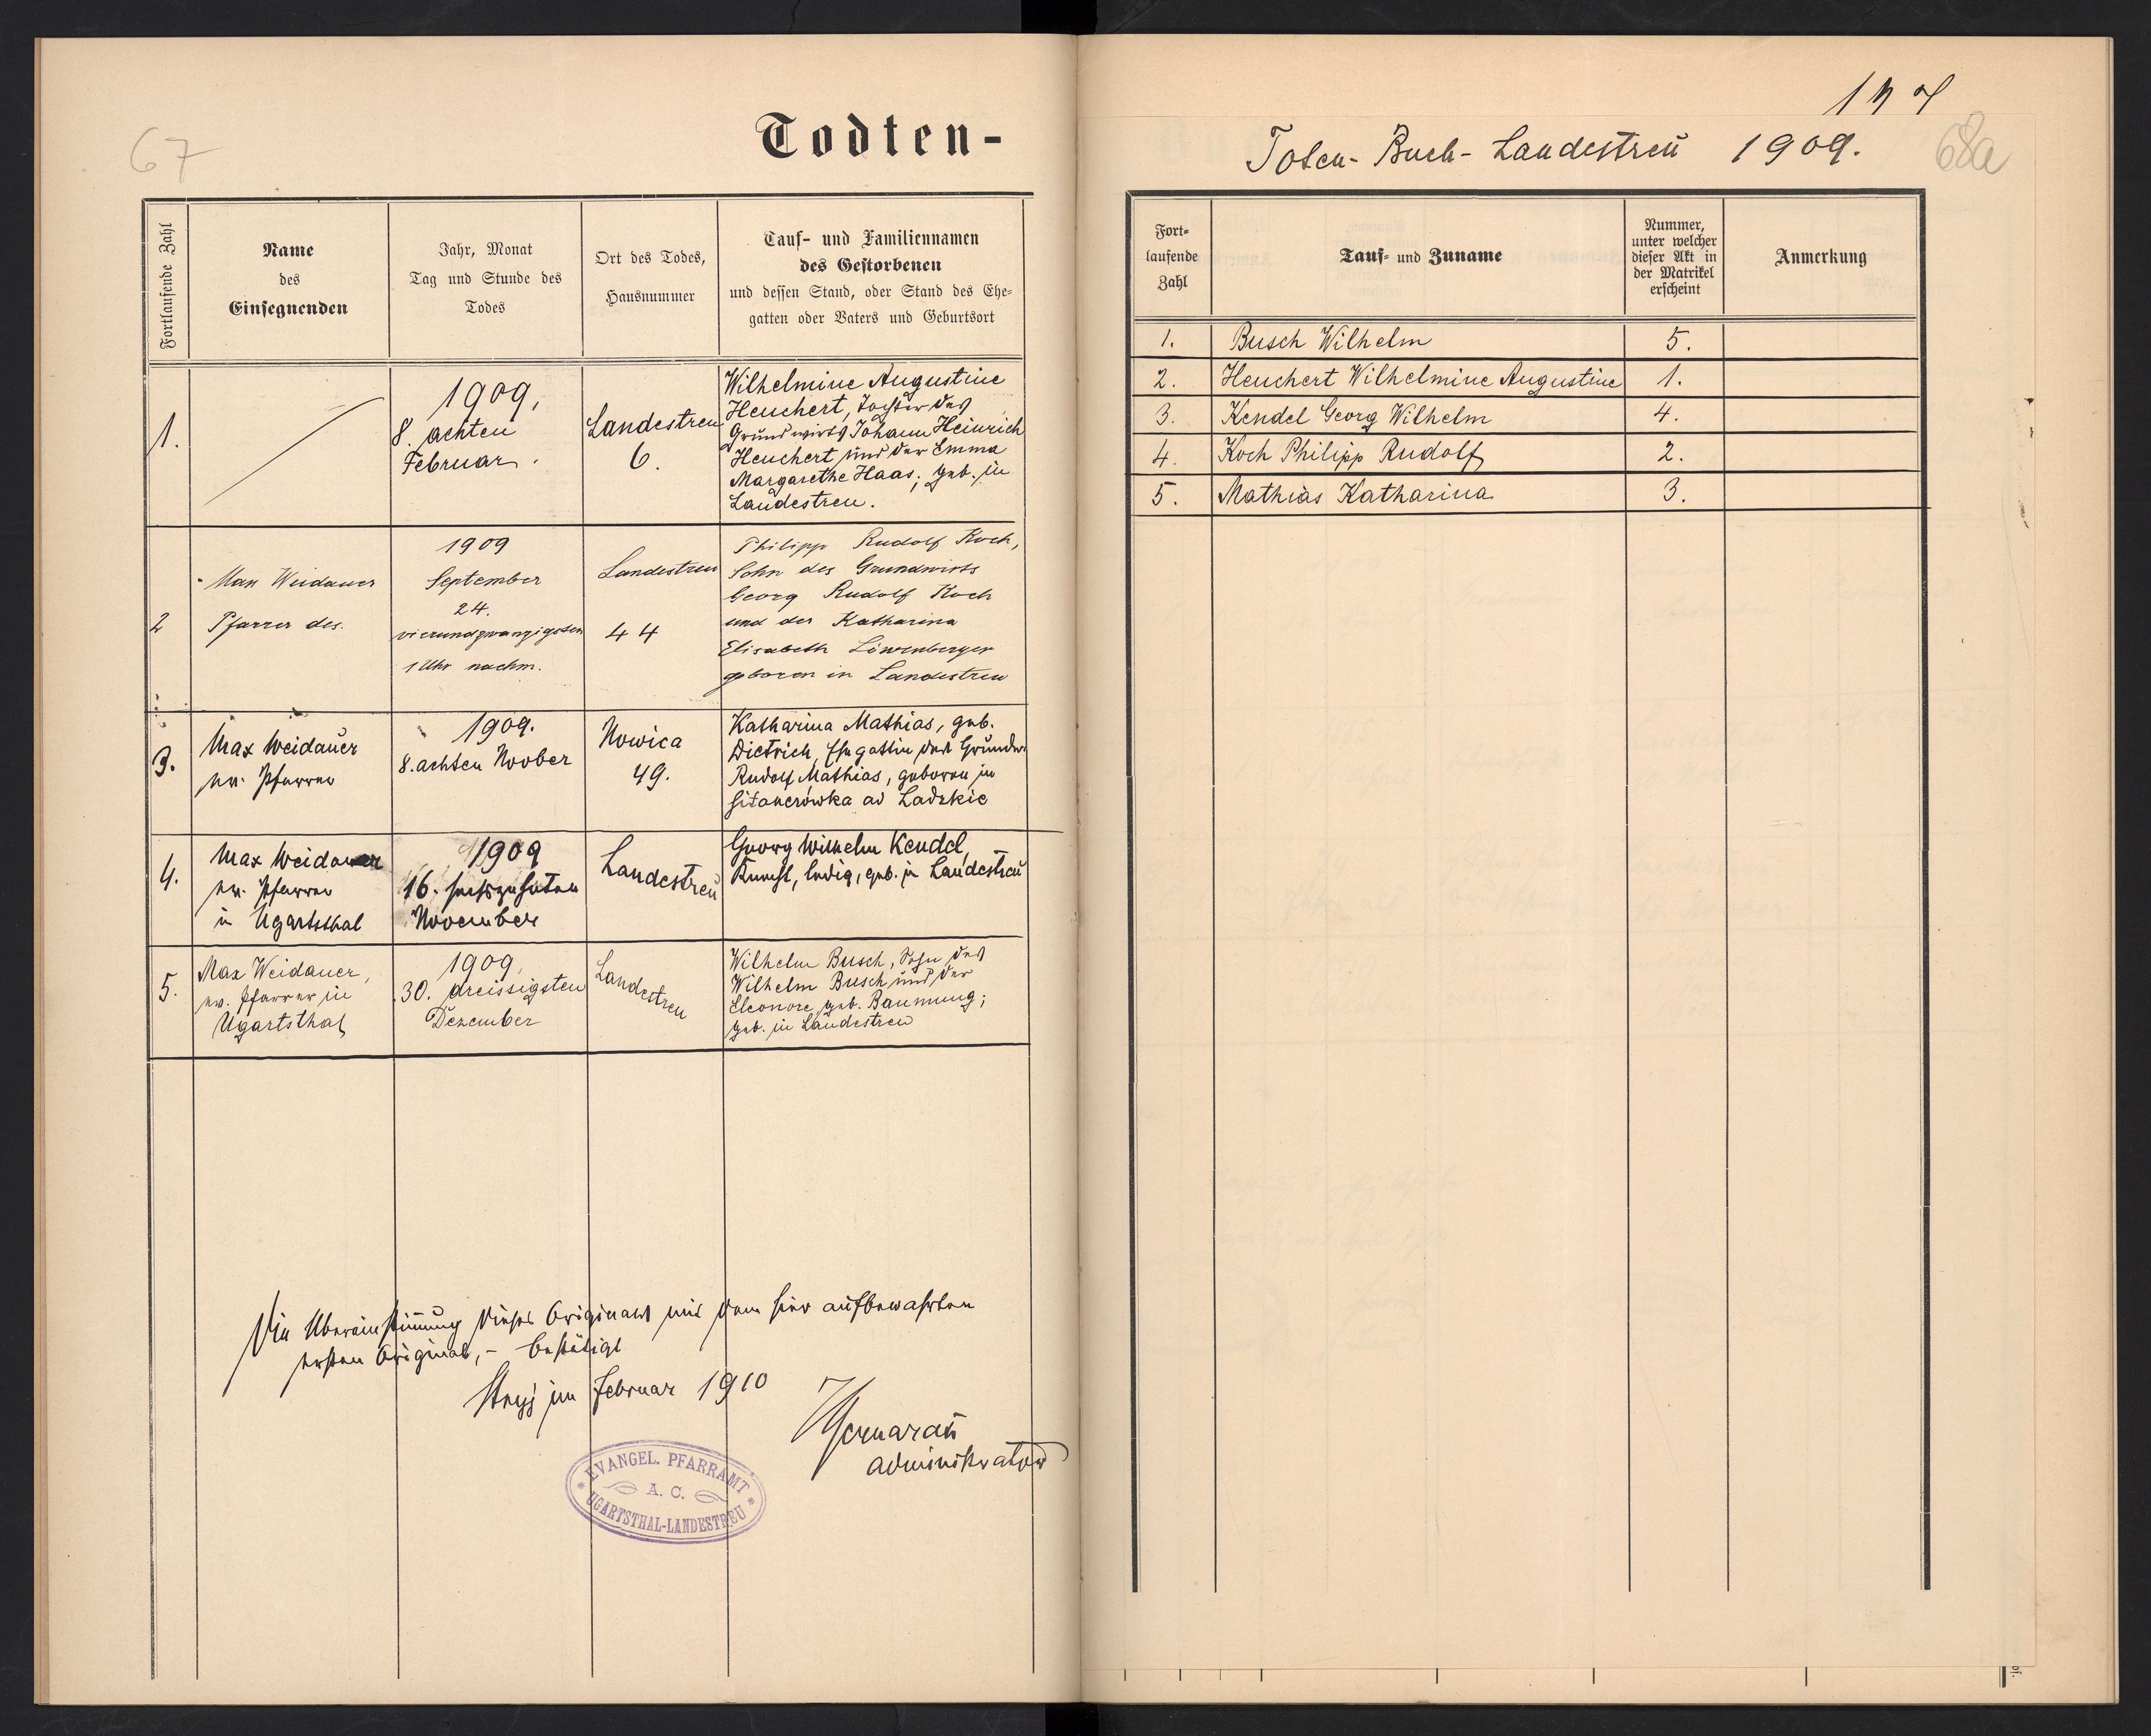 67
Todten-
Fortlaufende Zahl
Name
des
Einsegnenden
Jahr, Monat
Tag und Stunde des
Todes
Ort des Todes,
Hausnummer
Tauf- und Familiennamen
des Gestorbenen
und dessen Stand, oder Stand des Ehe-
gatten oder Vaters und Geburtsort
1.
1909,
8. achten
Februar.
Landestreu
6.
Wilhelmine Augustine
Heuchert, Tochter des
Grundwirts Johann Heinrich
Heuchert und der Emma
Margarethe Haas; geb. in
Landestreu.
2
Max Weidauer
Pfarrer des.
1909
September
24.
vierundzwanzigsten
1 Uhr nachm.
Landestreu
44
Philipp Rudolf Koch,
Sohn des Grundwirts
Georg Rudolf Koch
und der Katharina
Elisabeth Löwenberger
geboren in Landestreu
3.
Max Weidauer
ev. Pfarrer
1909.
8. achten Nvober
Nowica
49.
Katharina Mathias, geb.
Dietrich, Ehegattin des Grundw.
Rudolf Mathias, geboren in
ad Ladzkie
4.
Max Weidauer
ev. Pfarrer
in Ugartsthal
1909
16. sechszehnten
November
Landestreu
Georg Wilhelm Kendel,
Knecht, ledig, geb. in Landestreu
5.
Max Weidauer,
ev. Pfarrer in
Ugartsthal
1909,
30. dreissigsten
Dezember
Landestreu
Wilhelm Busch, Sohn des
Wilhelm Busch und der
Eleonore geb. Baumung;
geb. in Landestreu
Die Übereinstimmung dieses Originals mit dem hier aufbewahrten
ersten Original, - bestätigt
Stryj im Februar 1910
Administrator
EVANGEL. PFARRAMT
A. C.
UGARTSTHAL-LANDESTREU
Toten-Buch-Landestreu 1909.
68a
Fort-
laufende
Zahl
Tauf- und Zuname
Nummer,
unter welcher
dieser Akt in
der Matrikel
erscheint
Anmerkung
1. Busch Wilhelm 5.
2. Heuchert Wilhelmine Augustine 1.
3. Kendel Georg Wilhelm 4.
4. Koch Philipp Rudolf 2.
5. Mathias Katharina 3.